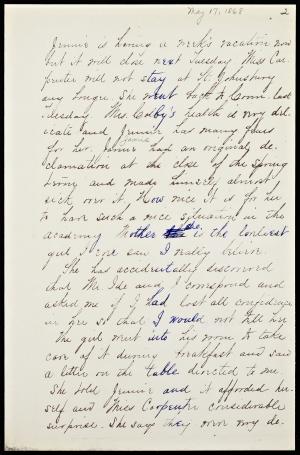 May 17, 1868 2
Jennie is having a week's vacation now
but it will close next Tuesday Miss Car
penter will not stay at St. Johnsbury
any longer. She went back to Conn. last
Tuesday Mrs. Colby's health is very del
icate and Jennie has many fears
for her. Jamie had an original de
clamation at the close of the Spring
term and made himself almost
sick over it. How nice it is for her
to have such a nice situation in the
academy Mother she is the loveliest
girl I ever saw I really believe.
She has accidentally discovered
that Mr Ide and I correspond and
asked me if I had lost all confidence
in her so that I would not tell her
The girl went into his room to take
care of it during breakfast and said
a letter on the table directed to me.
She told Jennie and it afforded her
self and Miss Carpenter considerable
surprise. She says they were very de.